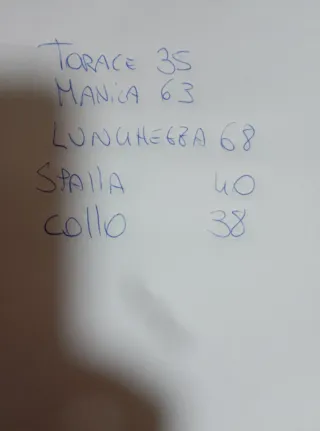 TORACE 35
MANICA 63
LUNGHEZZA 68
SPAllA 40
COllO 38